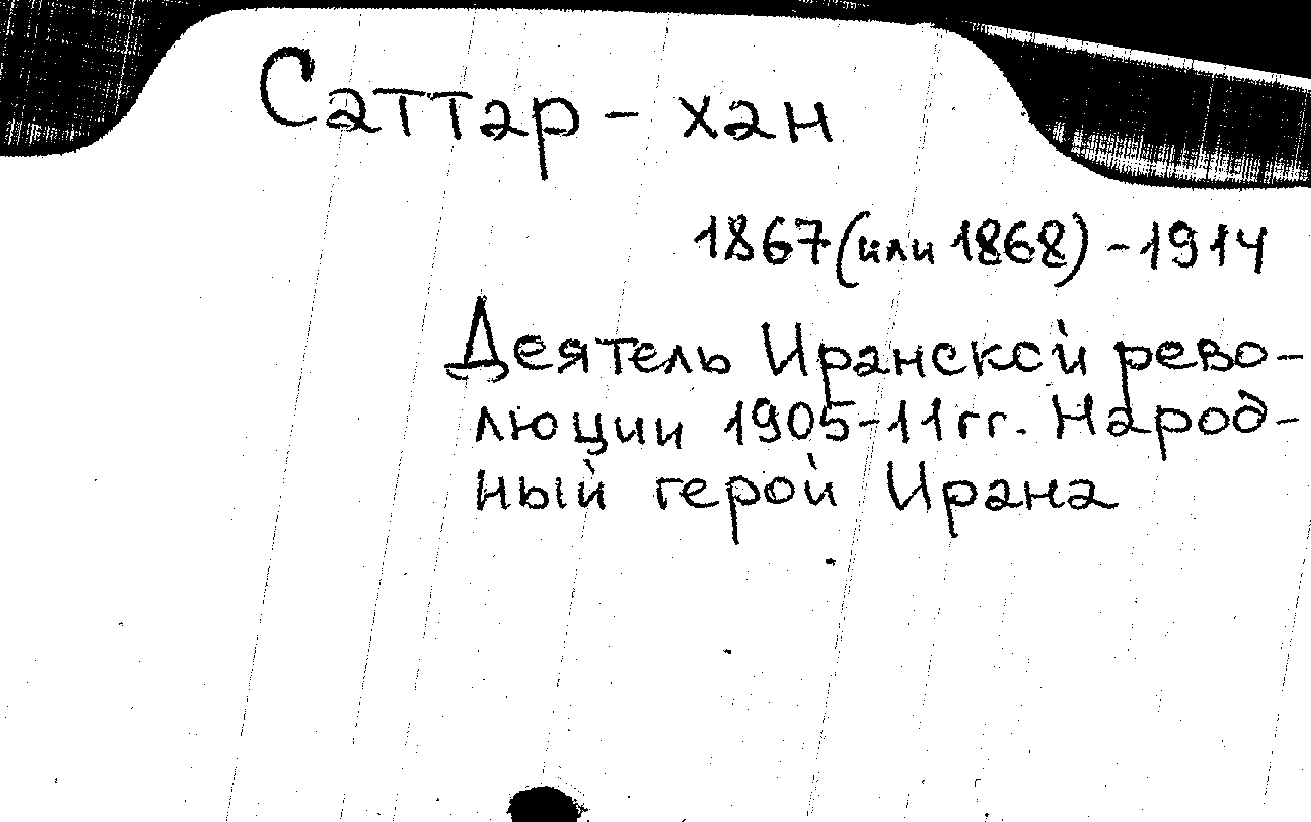 Саттар - хан
1867 (или 1868) - 1914
Деятель Иранской рево-
люции 1905-11 гг. Народ-
ный герой Ирана